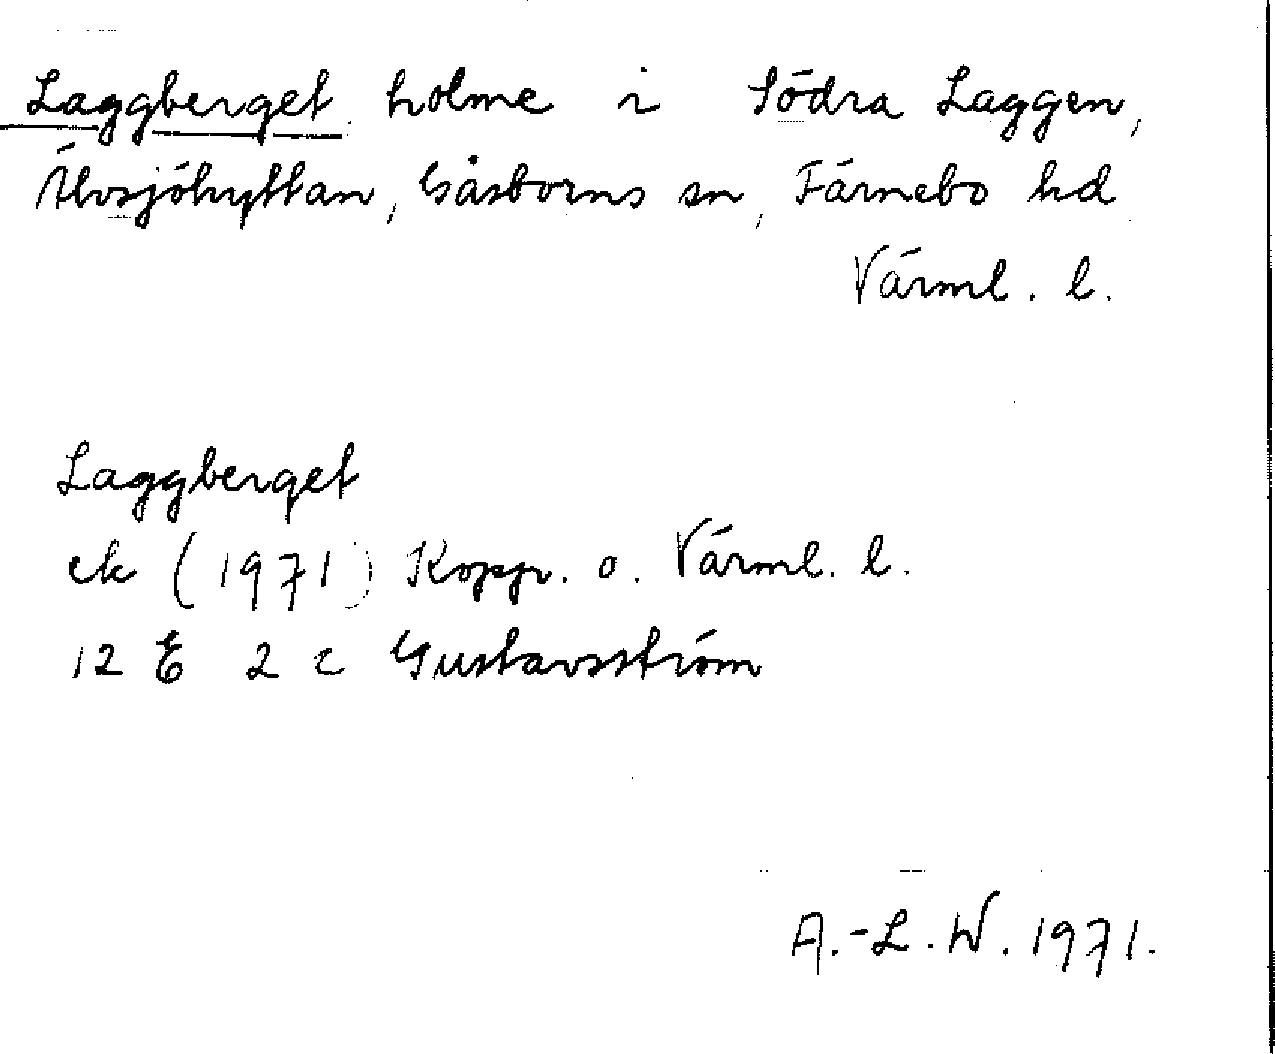 Laggberget holme i Södra Laggen,
Älvsjöhyttan, Gåsborns sn, Färnebo hd
Värml. l.
Laggberget
ek (1971) Kopp. o. Värml. l.
12 E 2 c Gustavsström
A.-L. W. 1971.